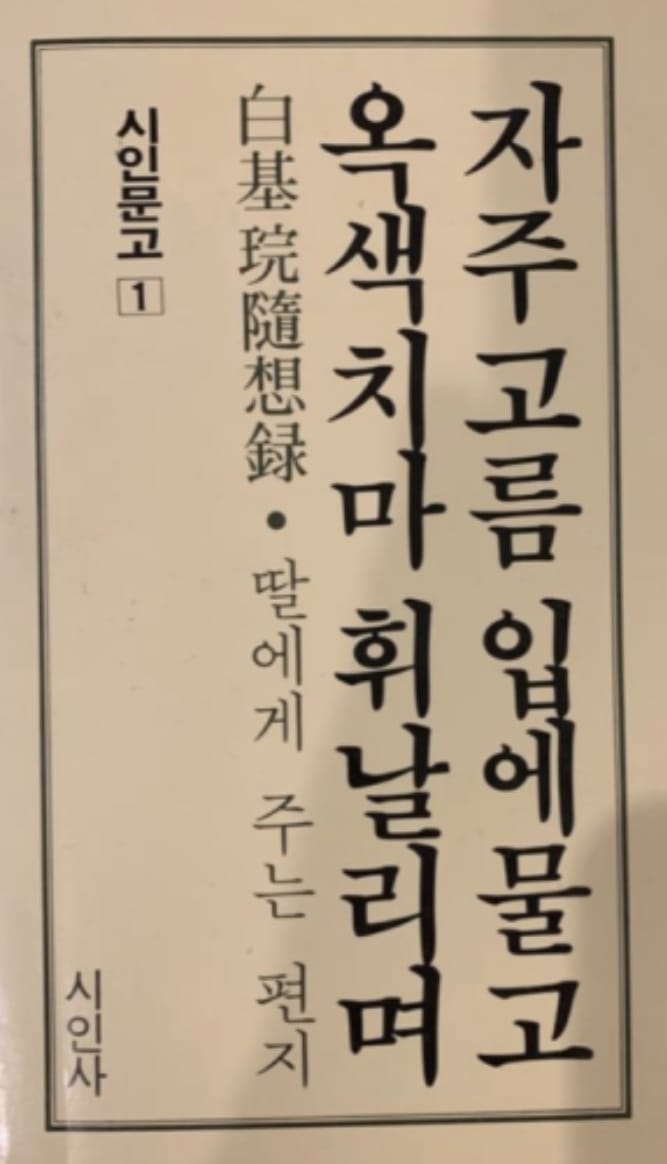 자주고름 입에물고
옥색치마 휘날리며
白基琓隨想録 • 딸에게 주는 편지
시인문고 1
시인사